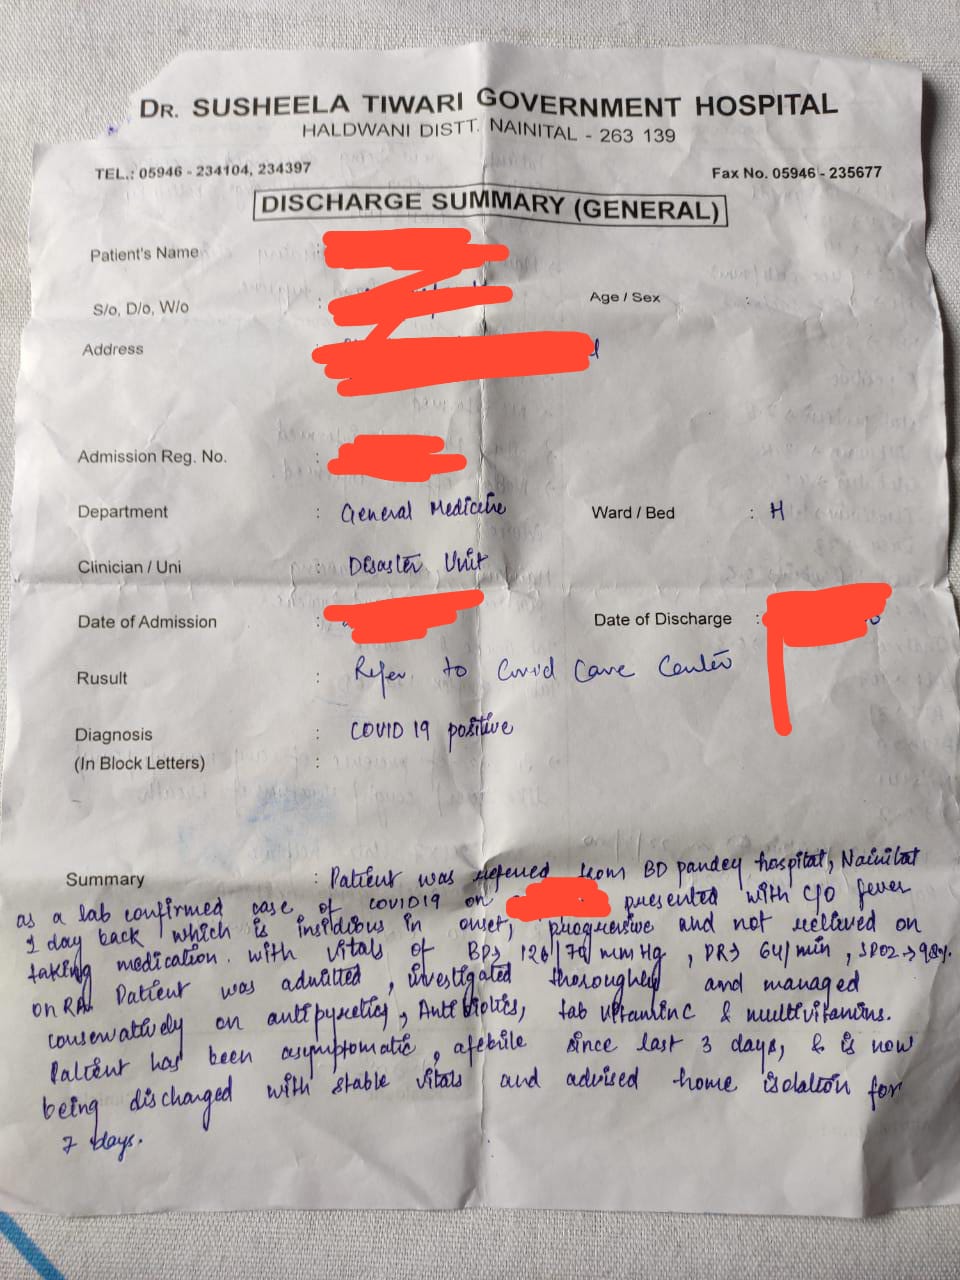 DR. SUSHEELA TIWARI GOVERNMENT HOSPITAL
HALDWANI DISTT. NAINITAL - 263 139
TEL.: 05946 - 234104, 234397 Fax No. 05946 - 235677
DISCHARGE SUMMARY (GENERAL)
Patient's Name :
S/o, D/o, W/o : Age / Sex :
Address :
Admission Reg. No. :
Department : General Medicine Ward / Bed : H
Clinician / Uni : Disaster Unit
Date of Admission : Date of Discharge :
Rusult : Refer to Covid Care Center
Diagnosis : COVID 19 positive
(In Block Letters) :
Summary : Patient was referred from BD pandey hospital, Nainital
as a lab confirmed case of COVID19 on presented with C/O fever
1 day back, which is insidious in onset, progressive and not relieved on
taking medication. with vitals of BP→ 126/79 mmHg, PR→ 64/min, SPO2→98%.
on RA. Patient was admitted, investigated thoroughly and managed
conservatively on antipyretics, Antibiotics, tab vitamin C & multivitamins.
Patient has been asymptomatic, afebrile since last 3 days, & is now
being discharged with stable vitals and advised home isolation for
7 days.